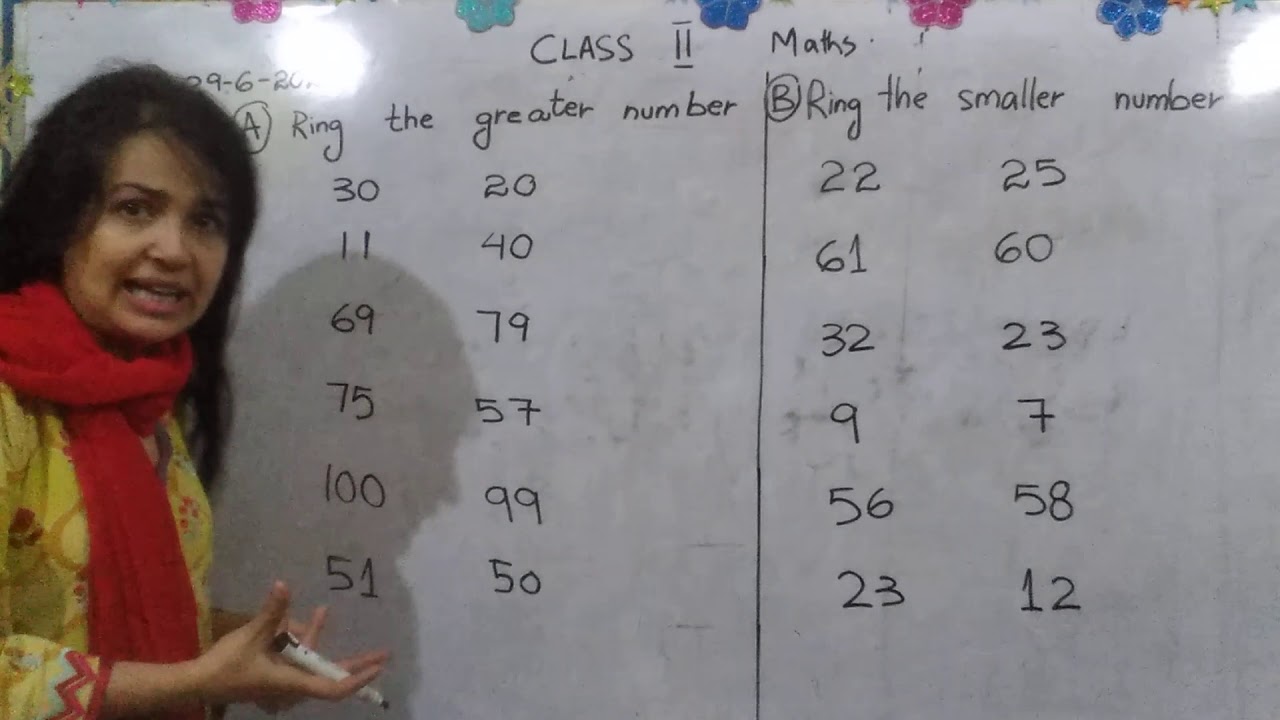 CLASS II Maths.
29-6-20
(A) Ring the greater number
30 20
11 40
69 79
75 57
100 99
51 50
(B) Ring the smaller number
22 25
61 60
32 23
9 7
56 58
23 12